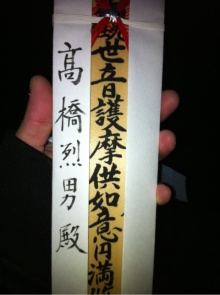 世音護摩供如意円満
高橋烈男殿